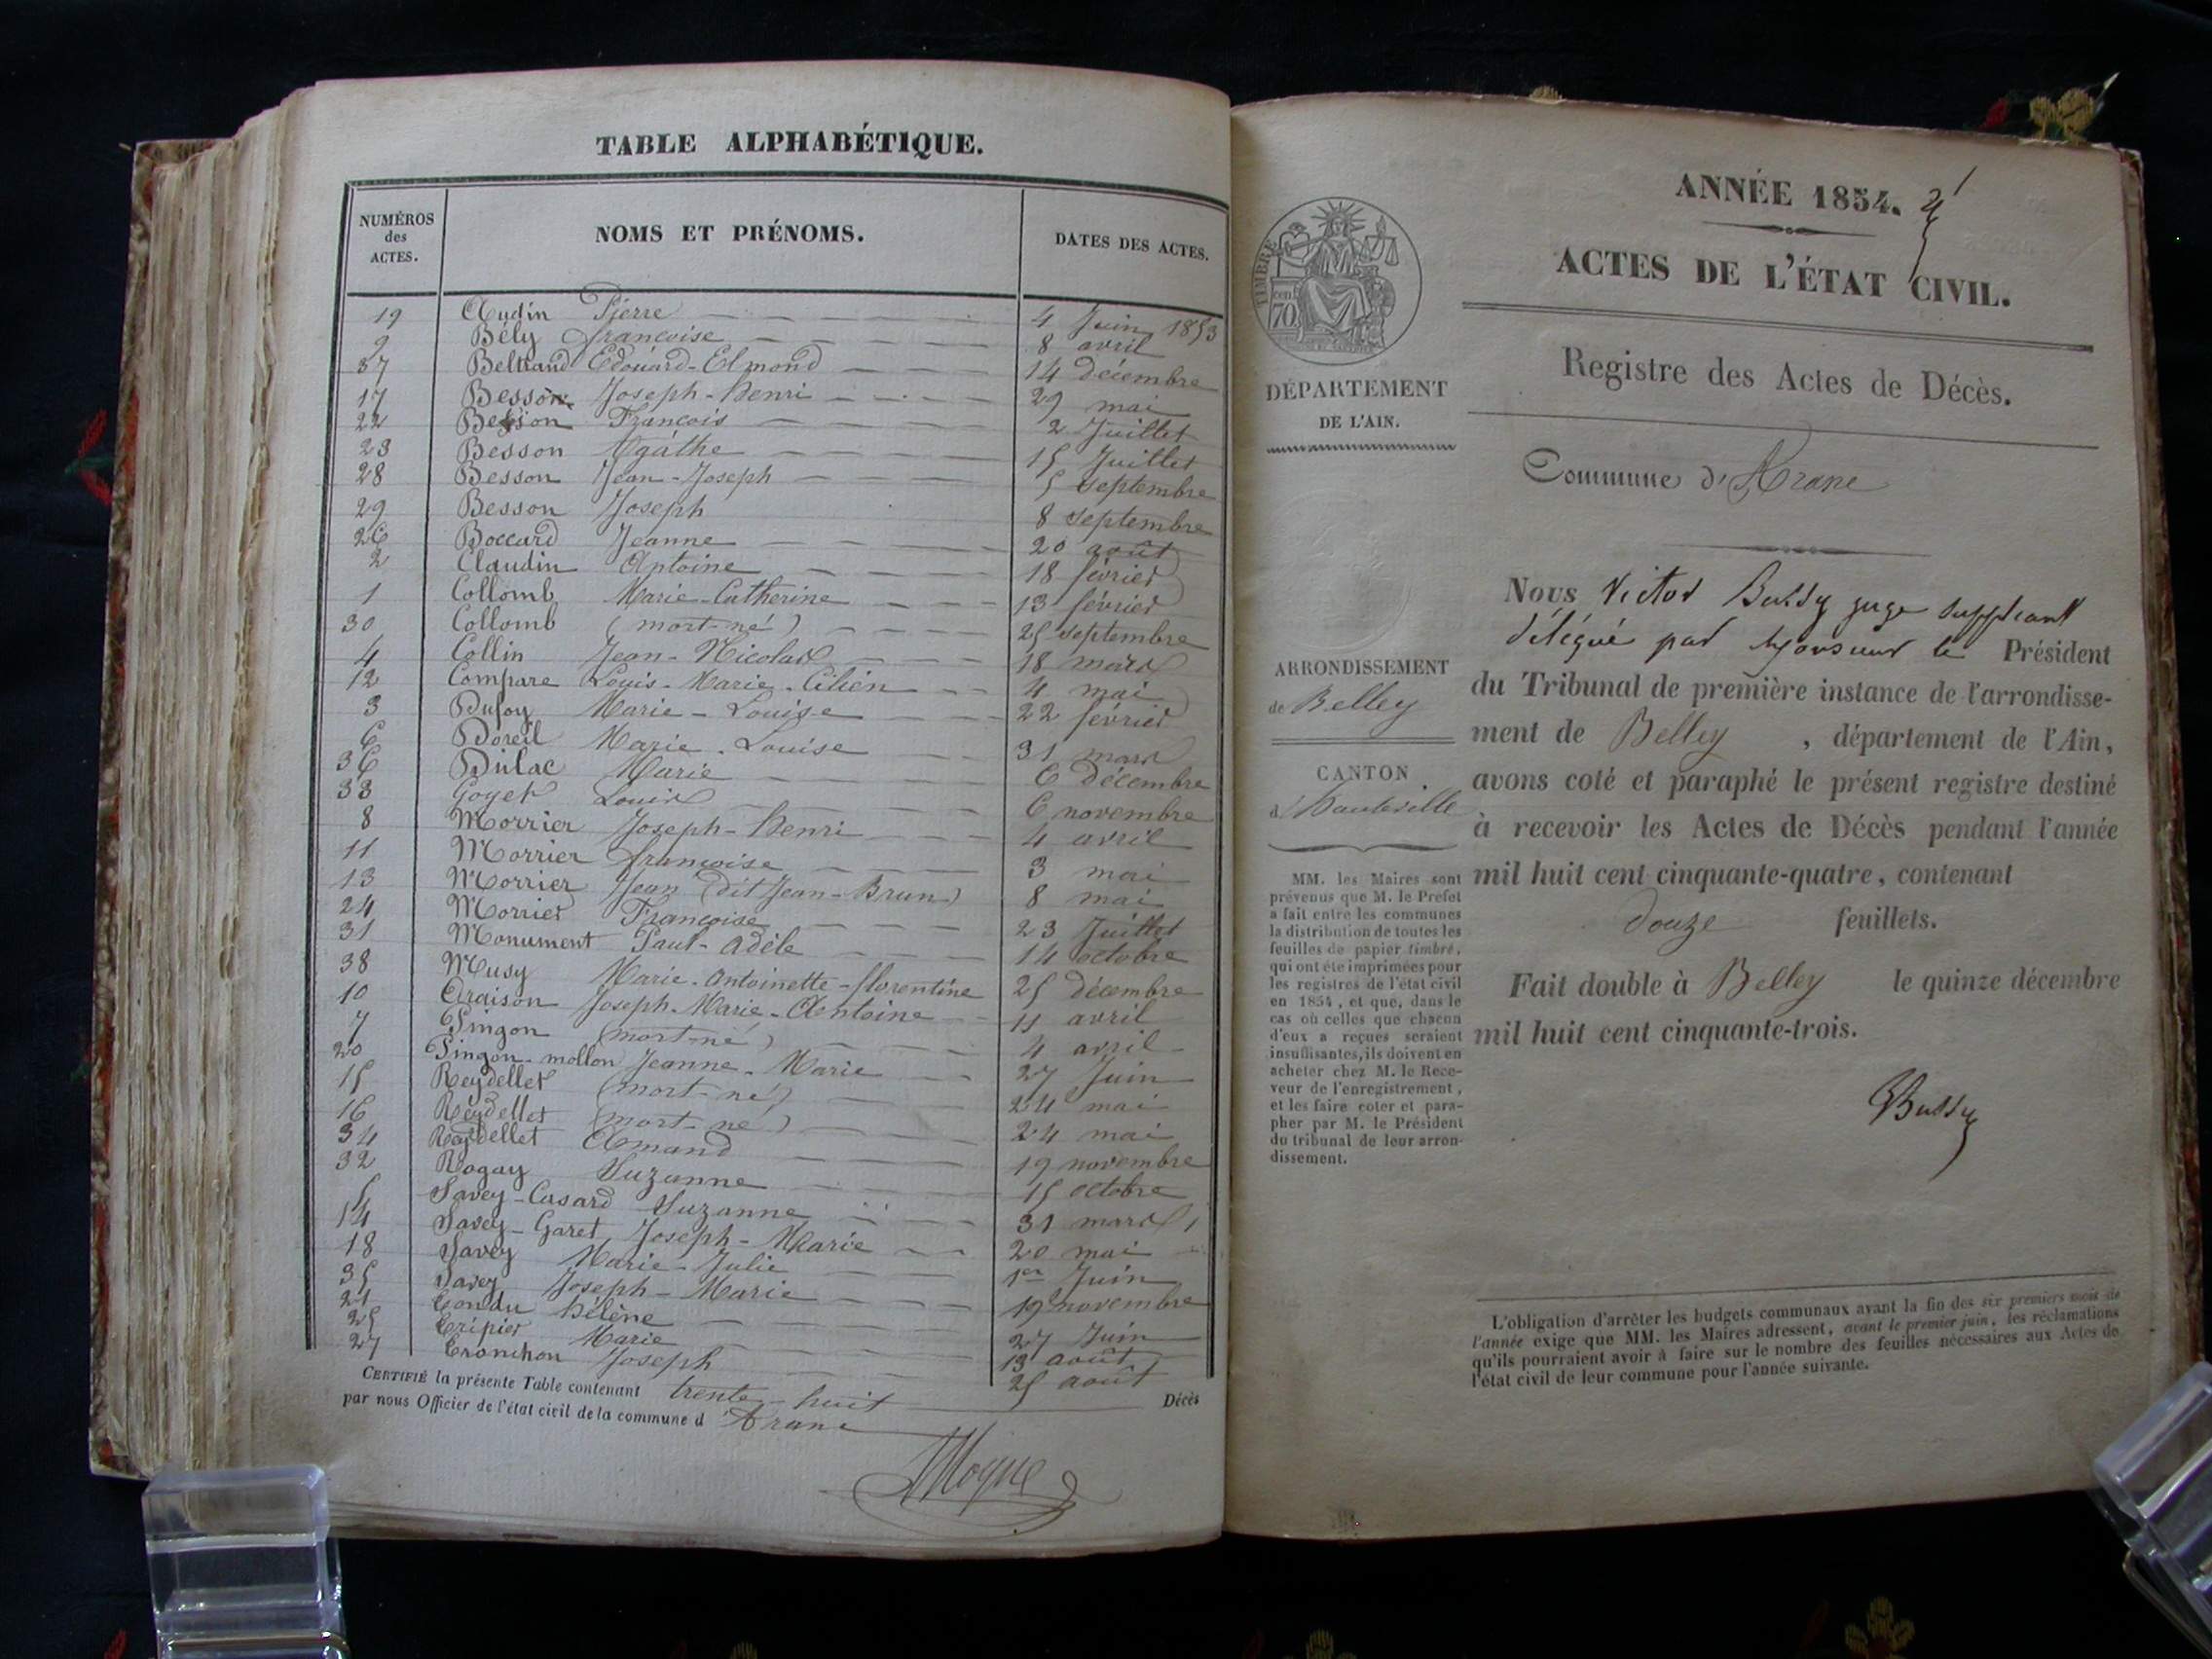 TABLE ALPHABÉTIQUE.
NUMÉROS des ACTES. NOMS ET PRÉNOMS. DATES DES ACTES.
19 Audin Pierre 4 Juin 1853
9 Bély françoise 8 avril
37 Beltrand Edouard-Elmond 14 décembre
17 Besson Joseph-henri 29 mai
22 Besson François 2 Juillet
23 Besson Agathe 15 Juillet
28 Besson Jean-Joseph 5 septembre
29 Besson Joseph 8 septembre
26 Boccard Jeanne 20 août
2 Claudin Antoine 18 février
1 Collomb Marie-Catherine 13 février
30 Collomb (mort-né) 25 septembre
4 Collin Jean-Nicolas 18 mars
12 Compare Louis-Marie- 4 mai
3 Dufoy Marie-Louise 22 février
6 Doreil Marie-Louise 31 mars
36 Dulac Marie 6 décembre
33 Goyet Louis 6 novembre
8 Morrier Joseph-henri 4 avril
11 Morrier françoise 3 mai
13 Morrier Jean (dit Jean-Brun) 8 mai
24 Morrier Françoise 23 Juillet
31 Monument Paul-adèle 14 octobre
38 Musy Marie-antoinette-florentine 25 décembre
10 Oraison Joseph-Marie-Antoine 11 avril
7 Pingon (mort-né) 4 avril
20 Pingon-mollon Jeanne-Marie 27 Juin
15 Reydellet (mort-né) 24 mai
16 Reydellet (mort-né) 24 mai
34 Reydellet Amand 19 novembre
32 Rogay Suzanne 15 octobre
5 Savey-Casard Suzanne 31 mars
14 Savey-Garet Joseph-Marie 20 mai
18 Savey Marie-Julie 1er Juin
35 Savey Joseph-Marie 19 novembre
21 Tondu hélène 27 Juin
25 Tripier Marie 13 août
27 Tronchon Joseph 25 août
CERTIFIÉ la présente Table contenant trente-huit Décès
par nous Officier de l'état civil de la commune d'Aranc
ANNÉE 1854.
ACTES DE L'ÉTAT CIVIL.
Registre des Actes de Décès.
Commune d'Aranc
TIMBRE
cen 70
DÉPARTEMENT
DE L'AIN.
ARRONDISSEMENT
de Belley
CANTON
d'hauteville
MM. les Maires sont
prévenus que M. le Préfet
a fait entre les communes
la distribution de toutes les
feuilles de papier timbré,
qui ont été imprimées pour
les registres de l'état civil
en 1854, et que, dans le
cas où celles que chacun
d'eux a reçues seraient
insuffisantes, ils doivent en
acheter chez M. le Rece-
veur de l'enregistrement,
et les faire coter et para-
pher par M. le Président
du tribunal de leur arron-
dissement.
Nous Victor Bussy juge suppléant
délégué par Monsieur le Président
du Tribunal de première instance de l'arrondisse-
ment de Belley, département de l'Ain,
avons coté et paraphé le présent registre destiné
à recevoir les Actes de Décès pendant l'année
mil huit cent cinquante-quatre, contenant
douze feuillets.
Fait double à Belley le quinze décembre
mil huit cent cinquante-trois.
Bussy
L'obligation d'arrêter les budgets communaux avant la fin des six premiers mois de
l'année exige que MM. les Maires adressent, avant le premier juin, les réclamations
qu'ils pourraient avoir à faire sur le nombre des feuilles nécessaires aux Actes de
l'état civil de leur commune pour l'année suivante.